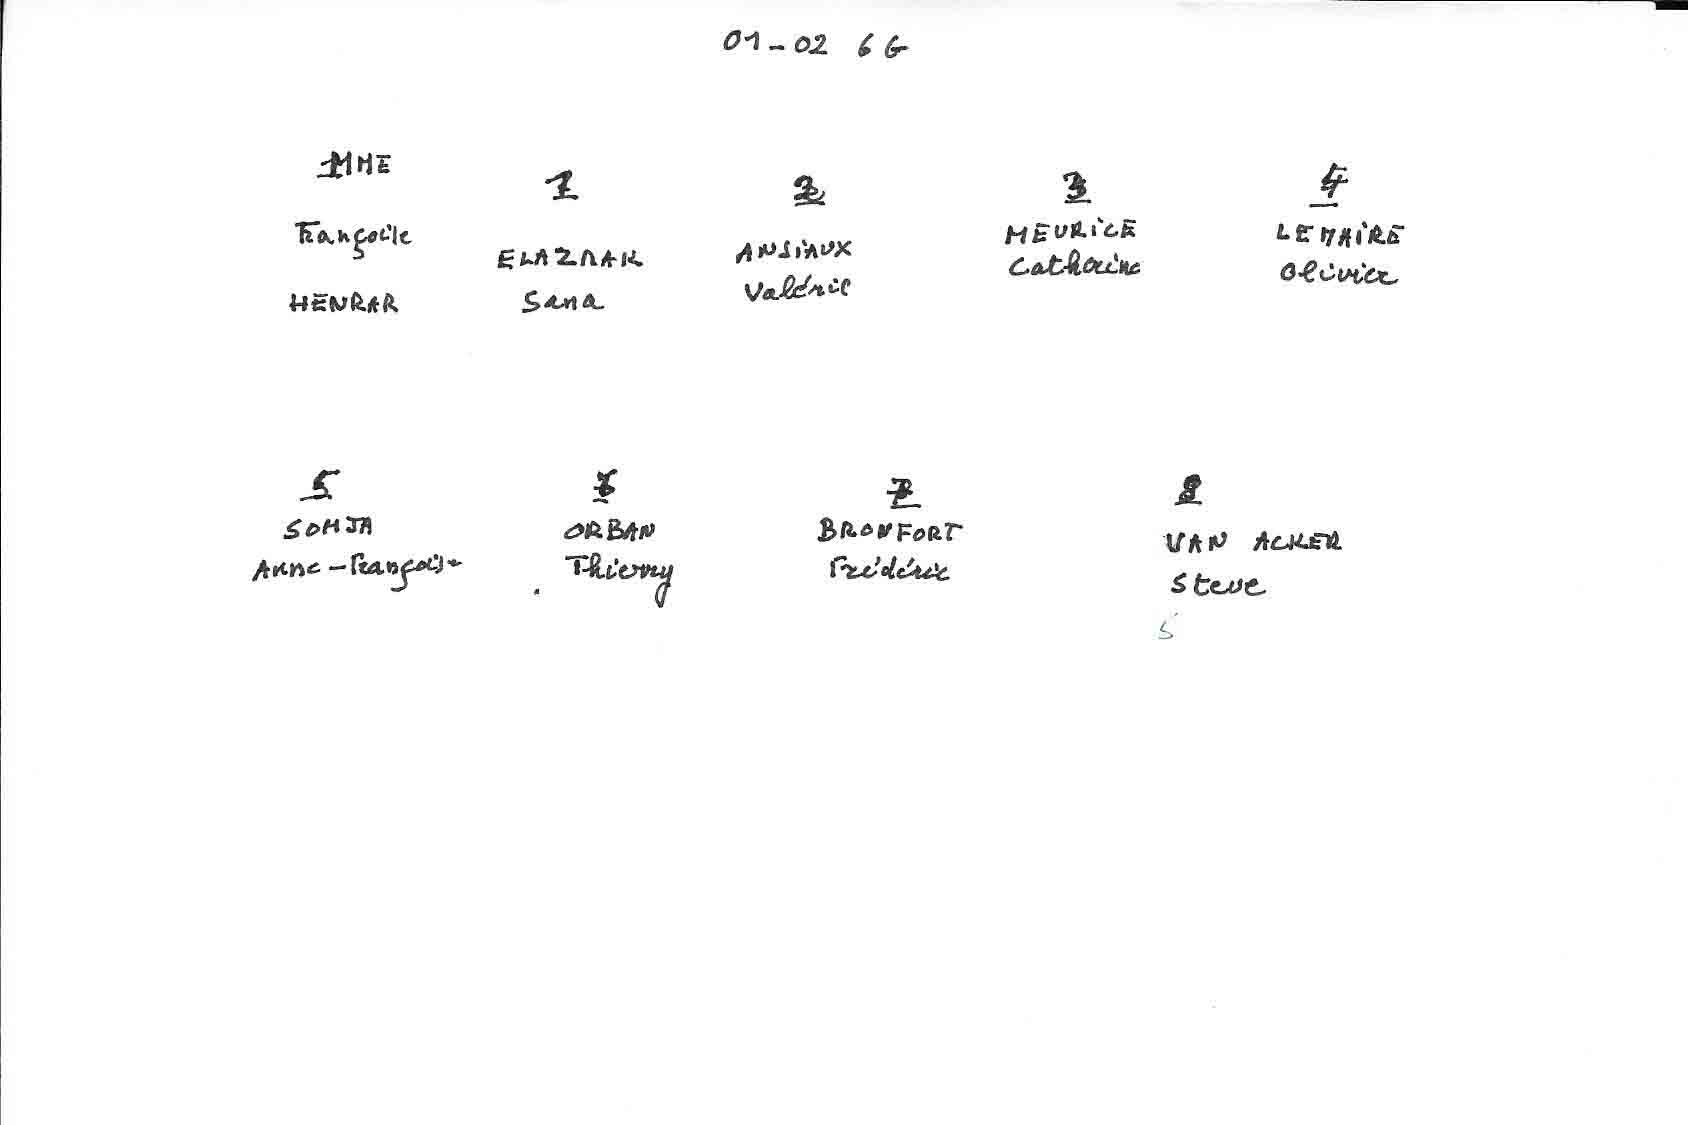 01-02 6G
MME
Françoise
HENRAR
1
ELAZRAK
Sana
2
ANSIAUX
Valérie
3
MEURICE
Catherine
4
LEMAIRE
Olivier
5
SOMJA
Anne-Françoise
6
ORBAN
Thierry
7
BRONFORT
Frédéric
8
VAN ACKER
Steve
5